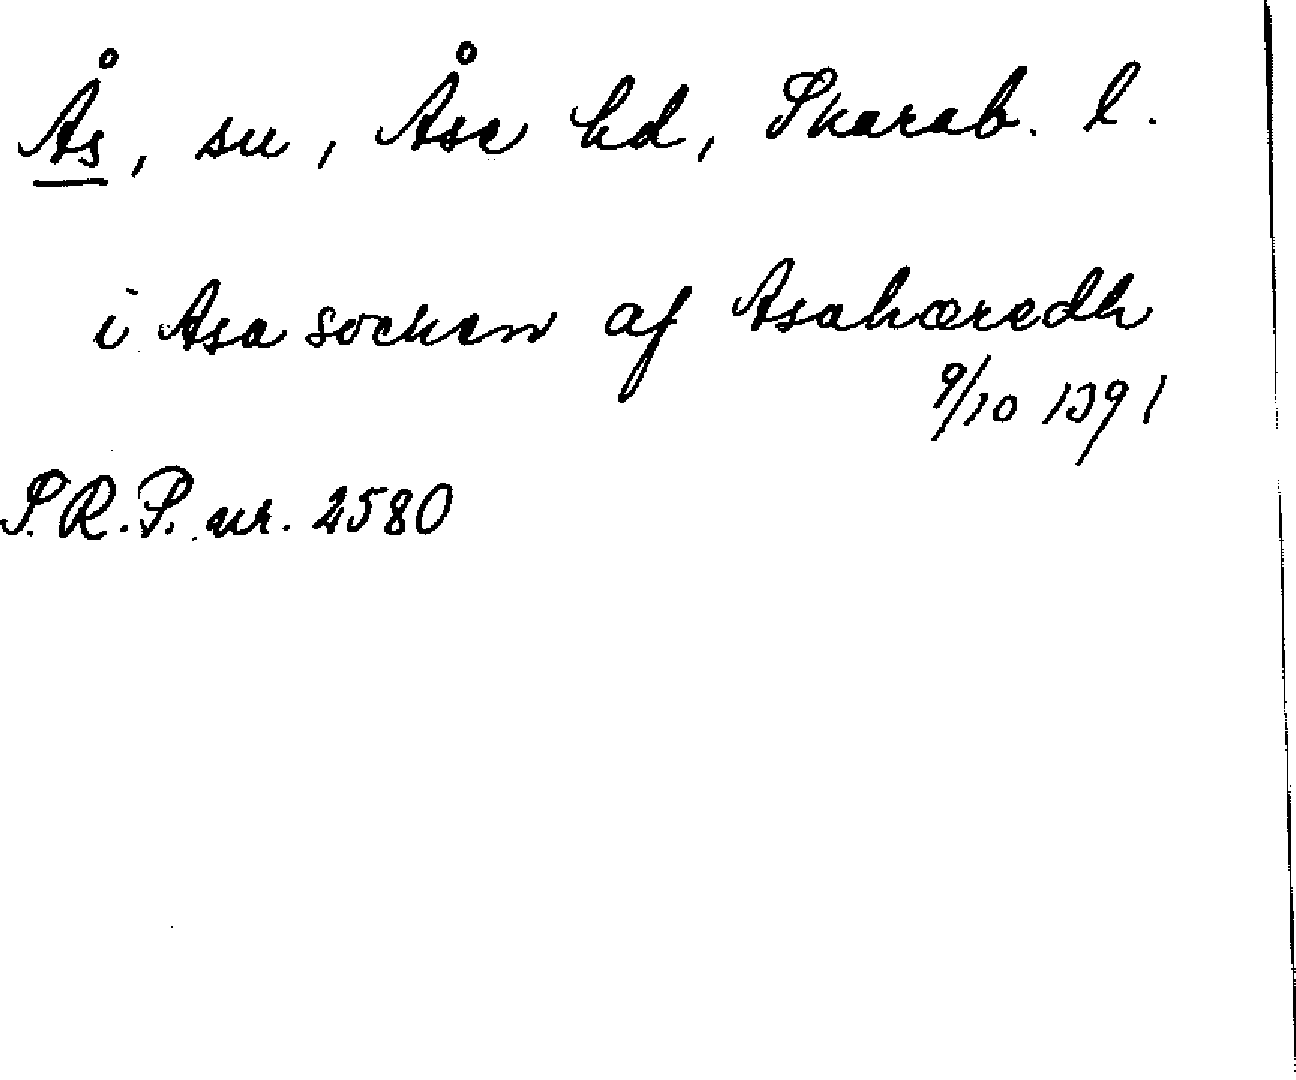 Ås, sn, Åse hd, Skarab. l.
i Asa socken af Asahæredh
9/10 1391
S.R.P. nr. 2580